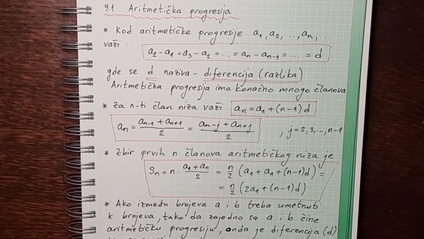 9.1 Aritmetička progresija
* Kod aritmetičke progresije a₁, a₂, ..., aₙ,
važi: a₂ - a₁ = a₃ - a₂ = ... = aₙ - aₙ₋₁ = ... = d
gde se d naziva diferencija (razlika)
Aritmetička progresija ima konačno mnogo članova
* Za n-ti član niza važi aₙ = a₁ + (n-1)d
aₙ = (aₙ₋₁ + aₙ₊₁)/2 = (aₙ₋ⱼ + aₙ₊ⱼ)/2, j = 2, 3, ..., n-1
* Zbir prvih n članova aritmetičkog niza je
Sₙ = n · (a₁ + aₙ)/2 = n/2 (a₁ + a₁ + (n-1)d) =
= n/2 (2a₁ + (n-1)d)
* Ako između brojeva a i b treba umetnuti
k brojeva, tako da zajedno sa a i b čine
aritmetičku progresiju, onda je diferencija (d)